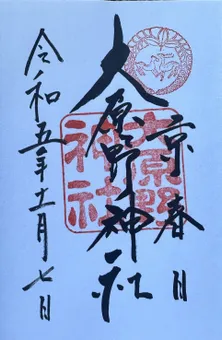 京春日
大原野神社
令和五年十一月七日
大原野神社